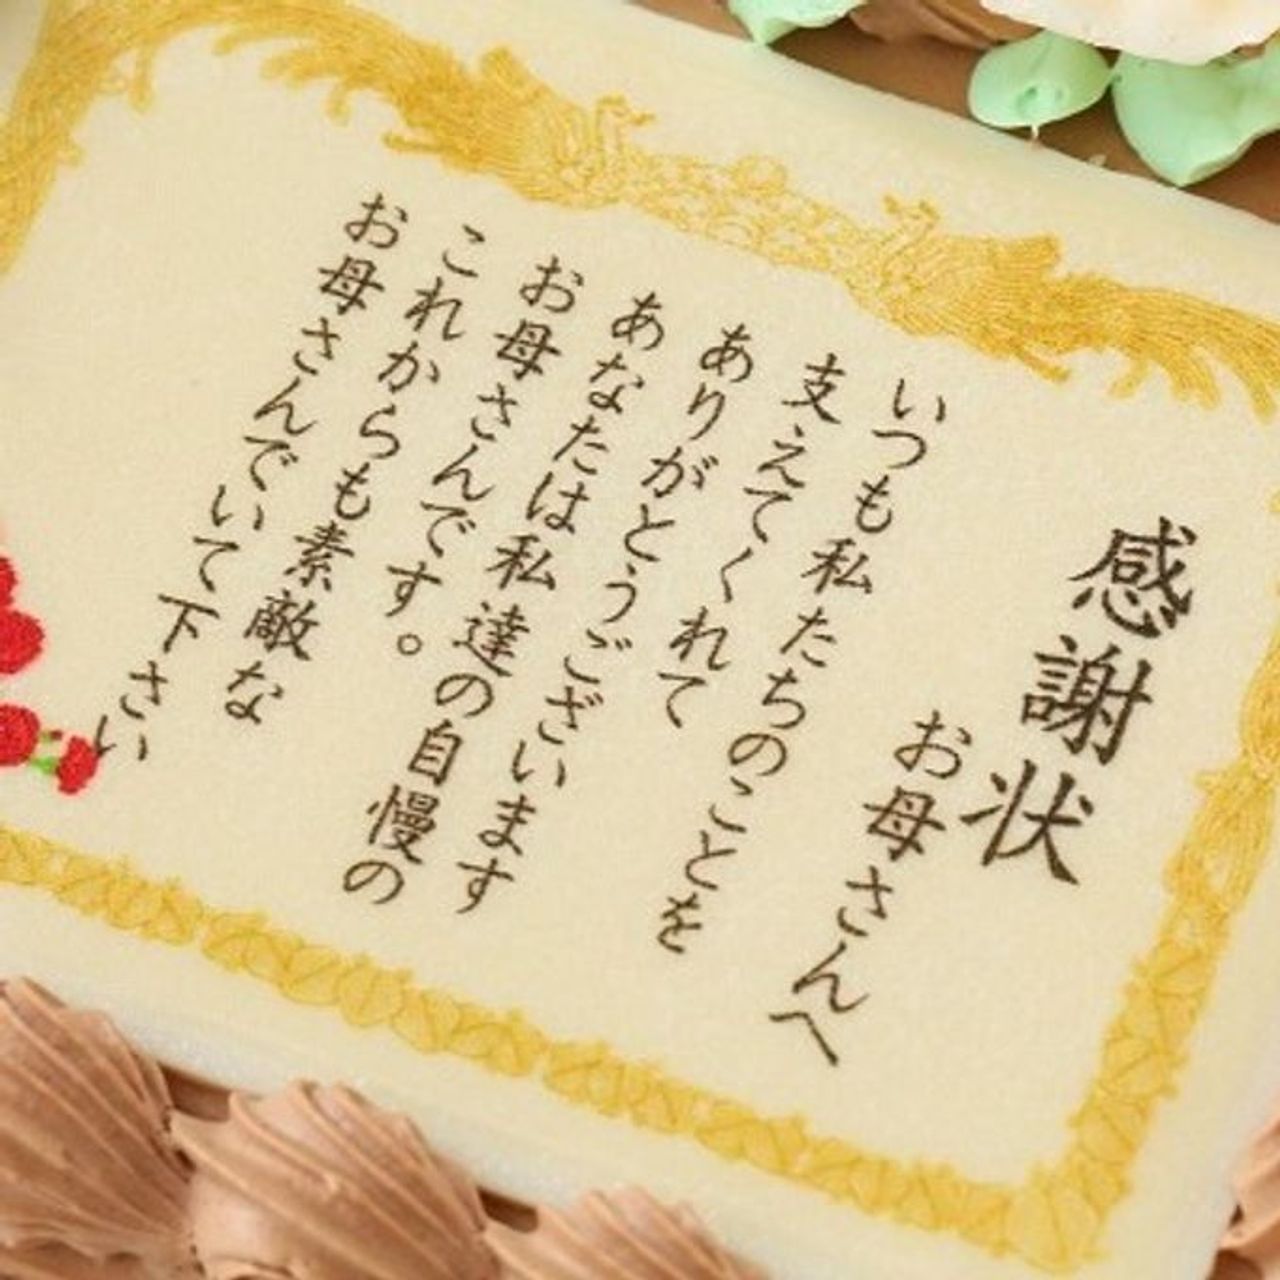 感謝状
お母さんへ
いつも私たちのことを
支えてくれて
ありがとうございます
あなたは私達の自慢の
お母さんです。
これからも素敵な
お母さんでいて下さい